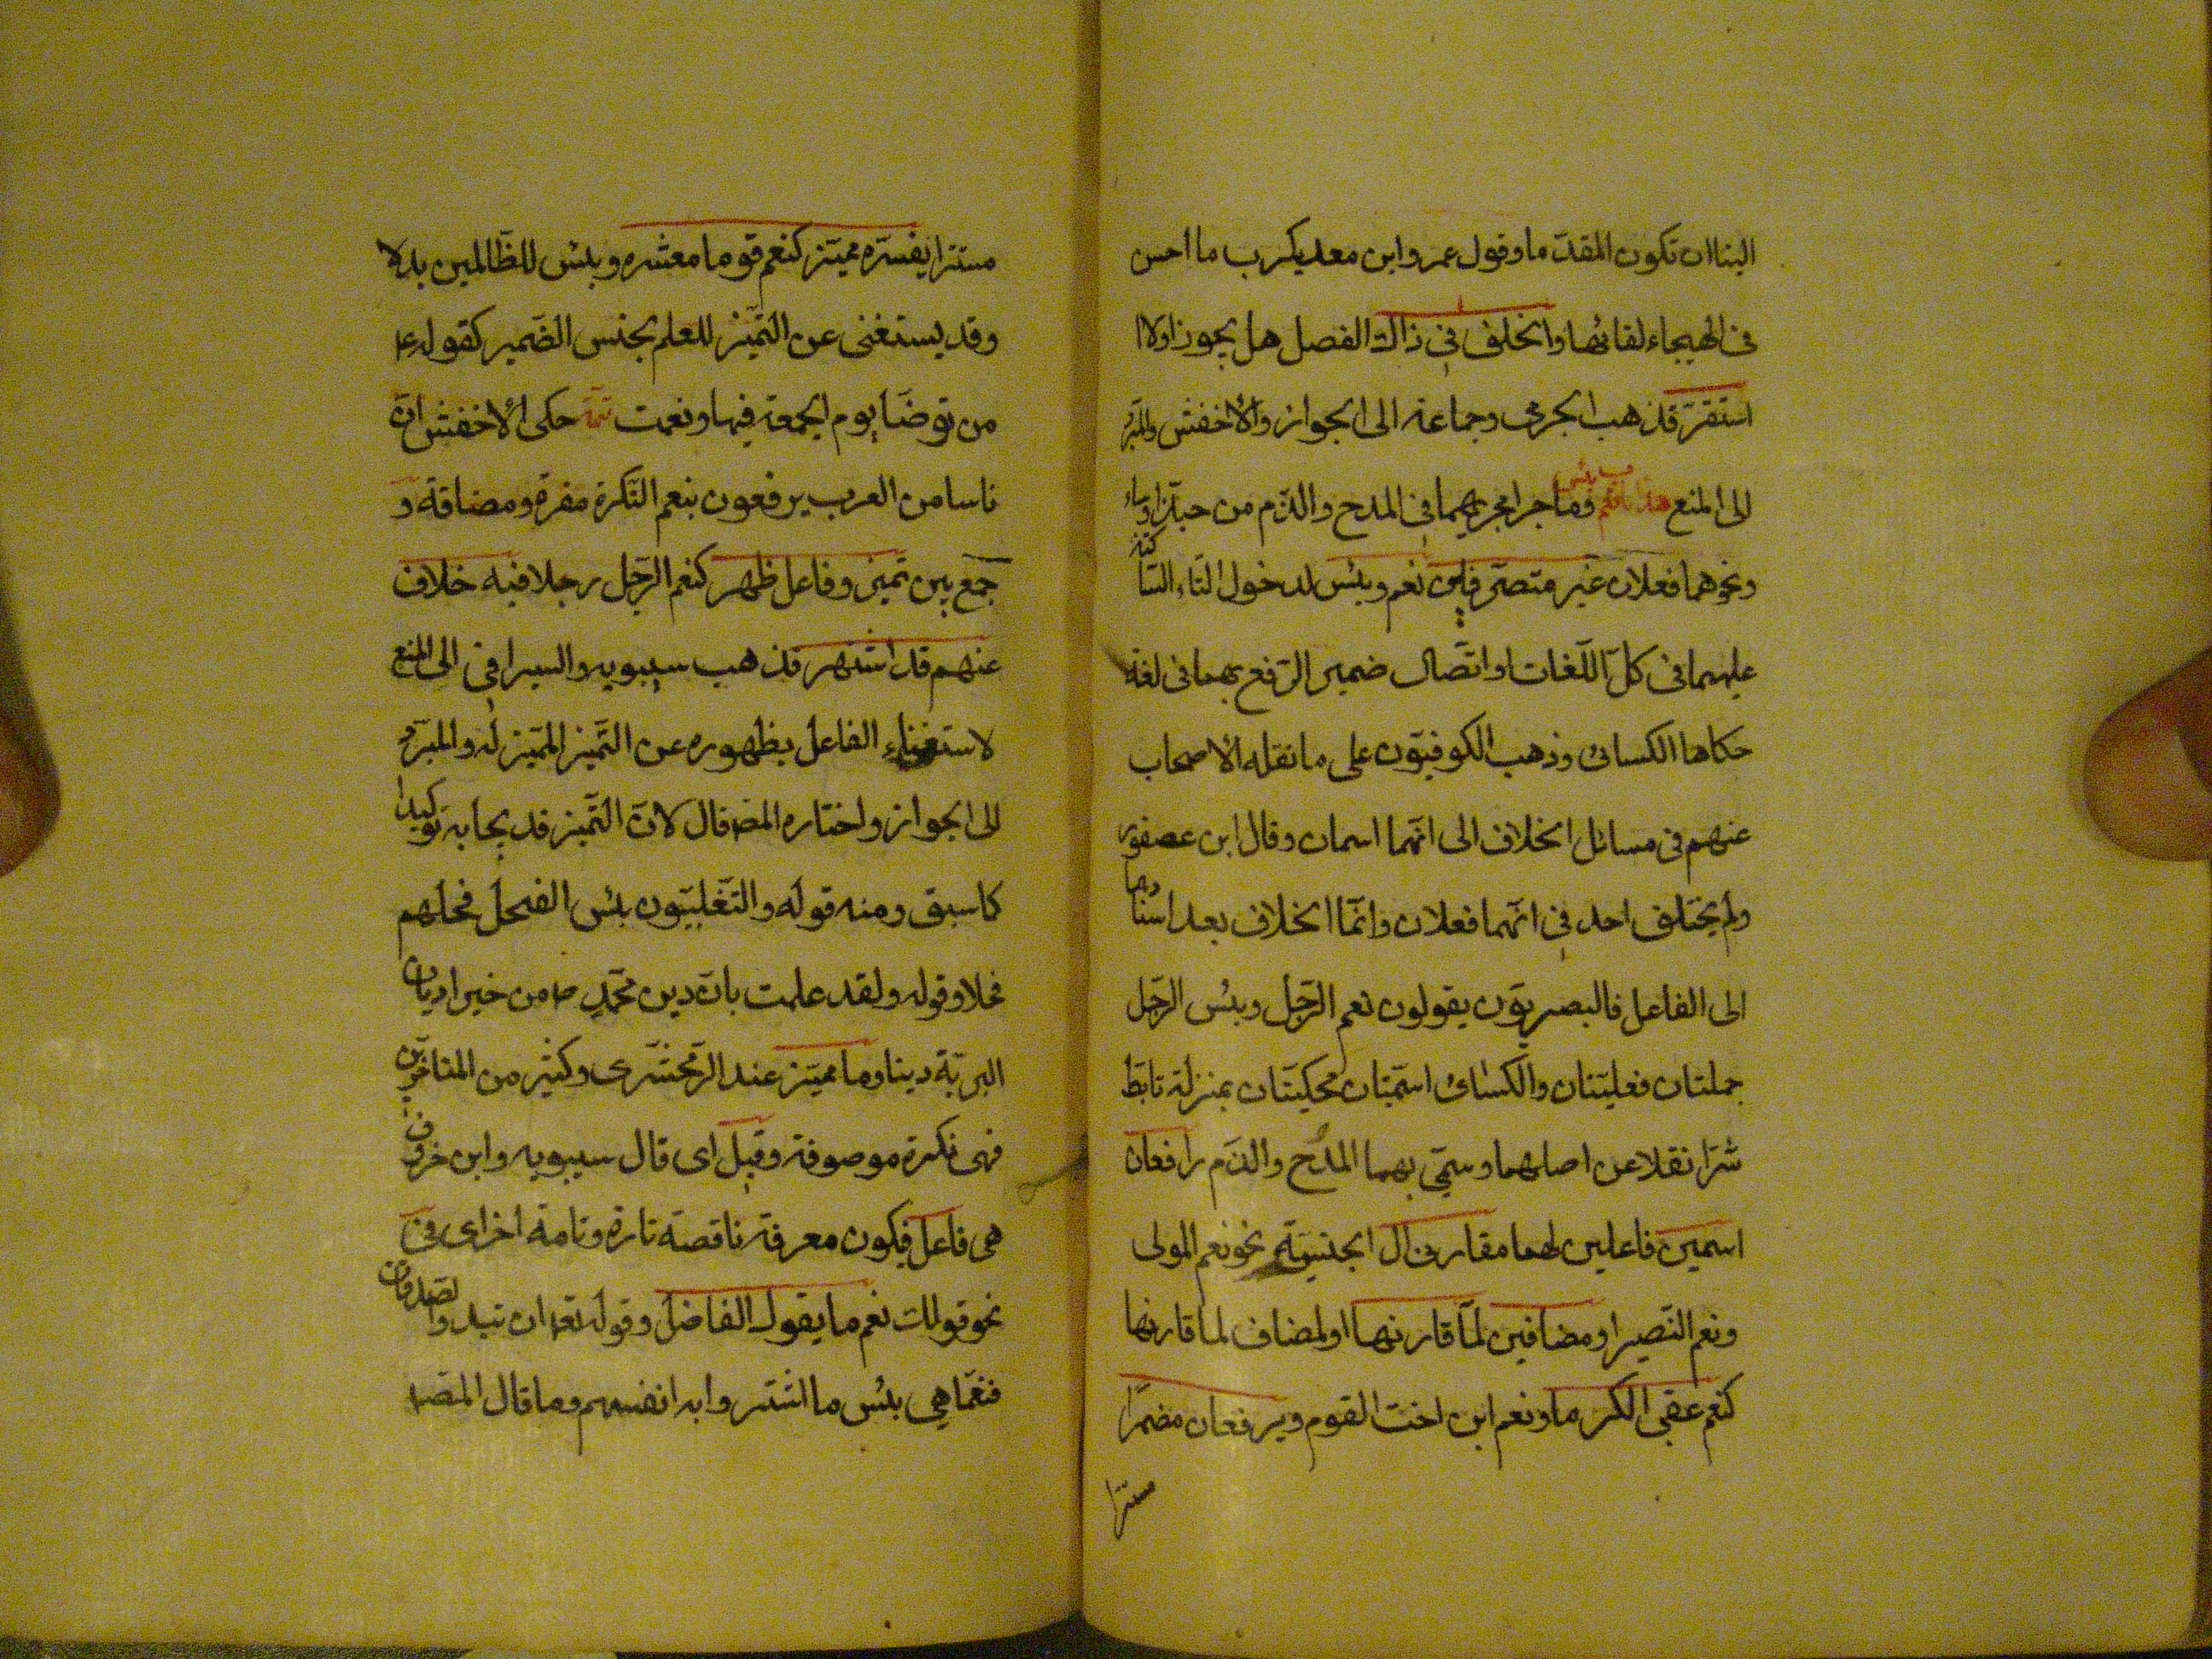 الينا ان تكون المقدّما وقول عمرو ابن معديكرب ما احسن
فى الهيجاء لقائها والخلف فى ذاك الفصل هل يجوز اولا
استقرّ فذهب الجرمى وجماعة الى الجواز والأخفش والمبرّد
الى المنع هذا باب نعم وبئس وما جرا مجريهما فى المدح والذّم من حبّذا وساء
ونحوهما فعلان غير متصرّفين نعم وبئس لدخول التّاء السّاكنة
عليهما فى كلّ اللّغات واتّصال ضمير الرّفع بهما فى لغة
حكاها الكسائى وذهب الكوفيّون على ما نقله الأصحاب
عنهم فى مسائل الخلاف الى انّهما اسمان وقال ابن عصفور
ولم يختلف احد فى انّهما فعلان وانّما الخلاف بعد اسنادهما
الى الفاعل فالبصريّون يقولون نعم الرّجل وبئس الرّجل
جملتان فعليّتان والكسائى اسميّتان محكيّتان بمنزلة تابّط
شرّا نقلا عن اصلهما وسمّى بهما المدح والذّم رافعان
اسمين فاعلين لهما مقارنى ال الجنسيّة نحو نعم المولى
ونعم النّصير او مضافين لما قارنها او لمضاف لما قارنها
كنعم عقبى الكرما ونعم ابن اخت القوم ويرفعان مضمرا
مستترا
مستترا يفسّره مميّز كنعم قوما معشره وبئس للظّالمين بدلا
وقد يستغنى عن التّميز للعلم بجنس الضّمير كقوله ع
من توضّا يوم الجمعة فبها ونعمت تتمّة حكى الأخفش انّ
ناسا من العرب يرفعون بنعم النّكرة مفردة ومضافة و
جمع بين تميز وفاعل ظهر كنعم الرّجل رجلا فيه خلاف
عنهم قد اشتهر فذهب سيبويه والسيرافى الى المنع
لاستغناء الفاعل بظهوره عن التّميز المميّز له والمبرّد
الى الجواز واختاره المص قال لانّ التّميز قد يجابه توكيدا
كما سبق ومنه قوله والتّغلبيّون بئس الفحل فحلهم
فحلا وقوله ولقد علمت بانّ دين محمّد ص من خير اديان
البريّة دينا وما مميّز عند الزّمخشرى وكثير من المتاخّرين
فهى نكرة موصوفة وقيل اى قال سيبويه وابن خروف
هى فاعل فيكون معرفة ناقصة تارة وتامة اخراى فى
نحو قولك نعم ما يقول الفاضل وقوله تعه ان تبدوا لصدقات
فنعمّا هى بئس ما اشتروا به انفسهم وما قال المص